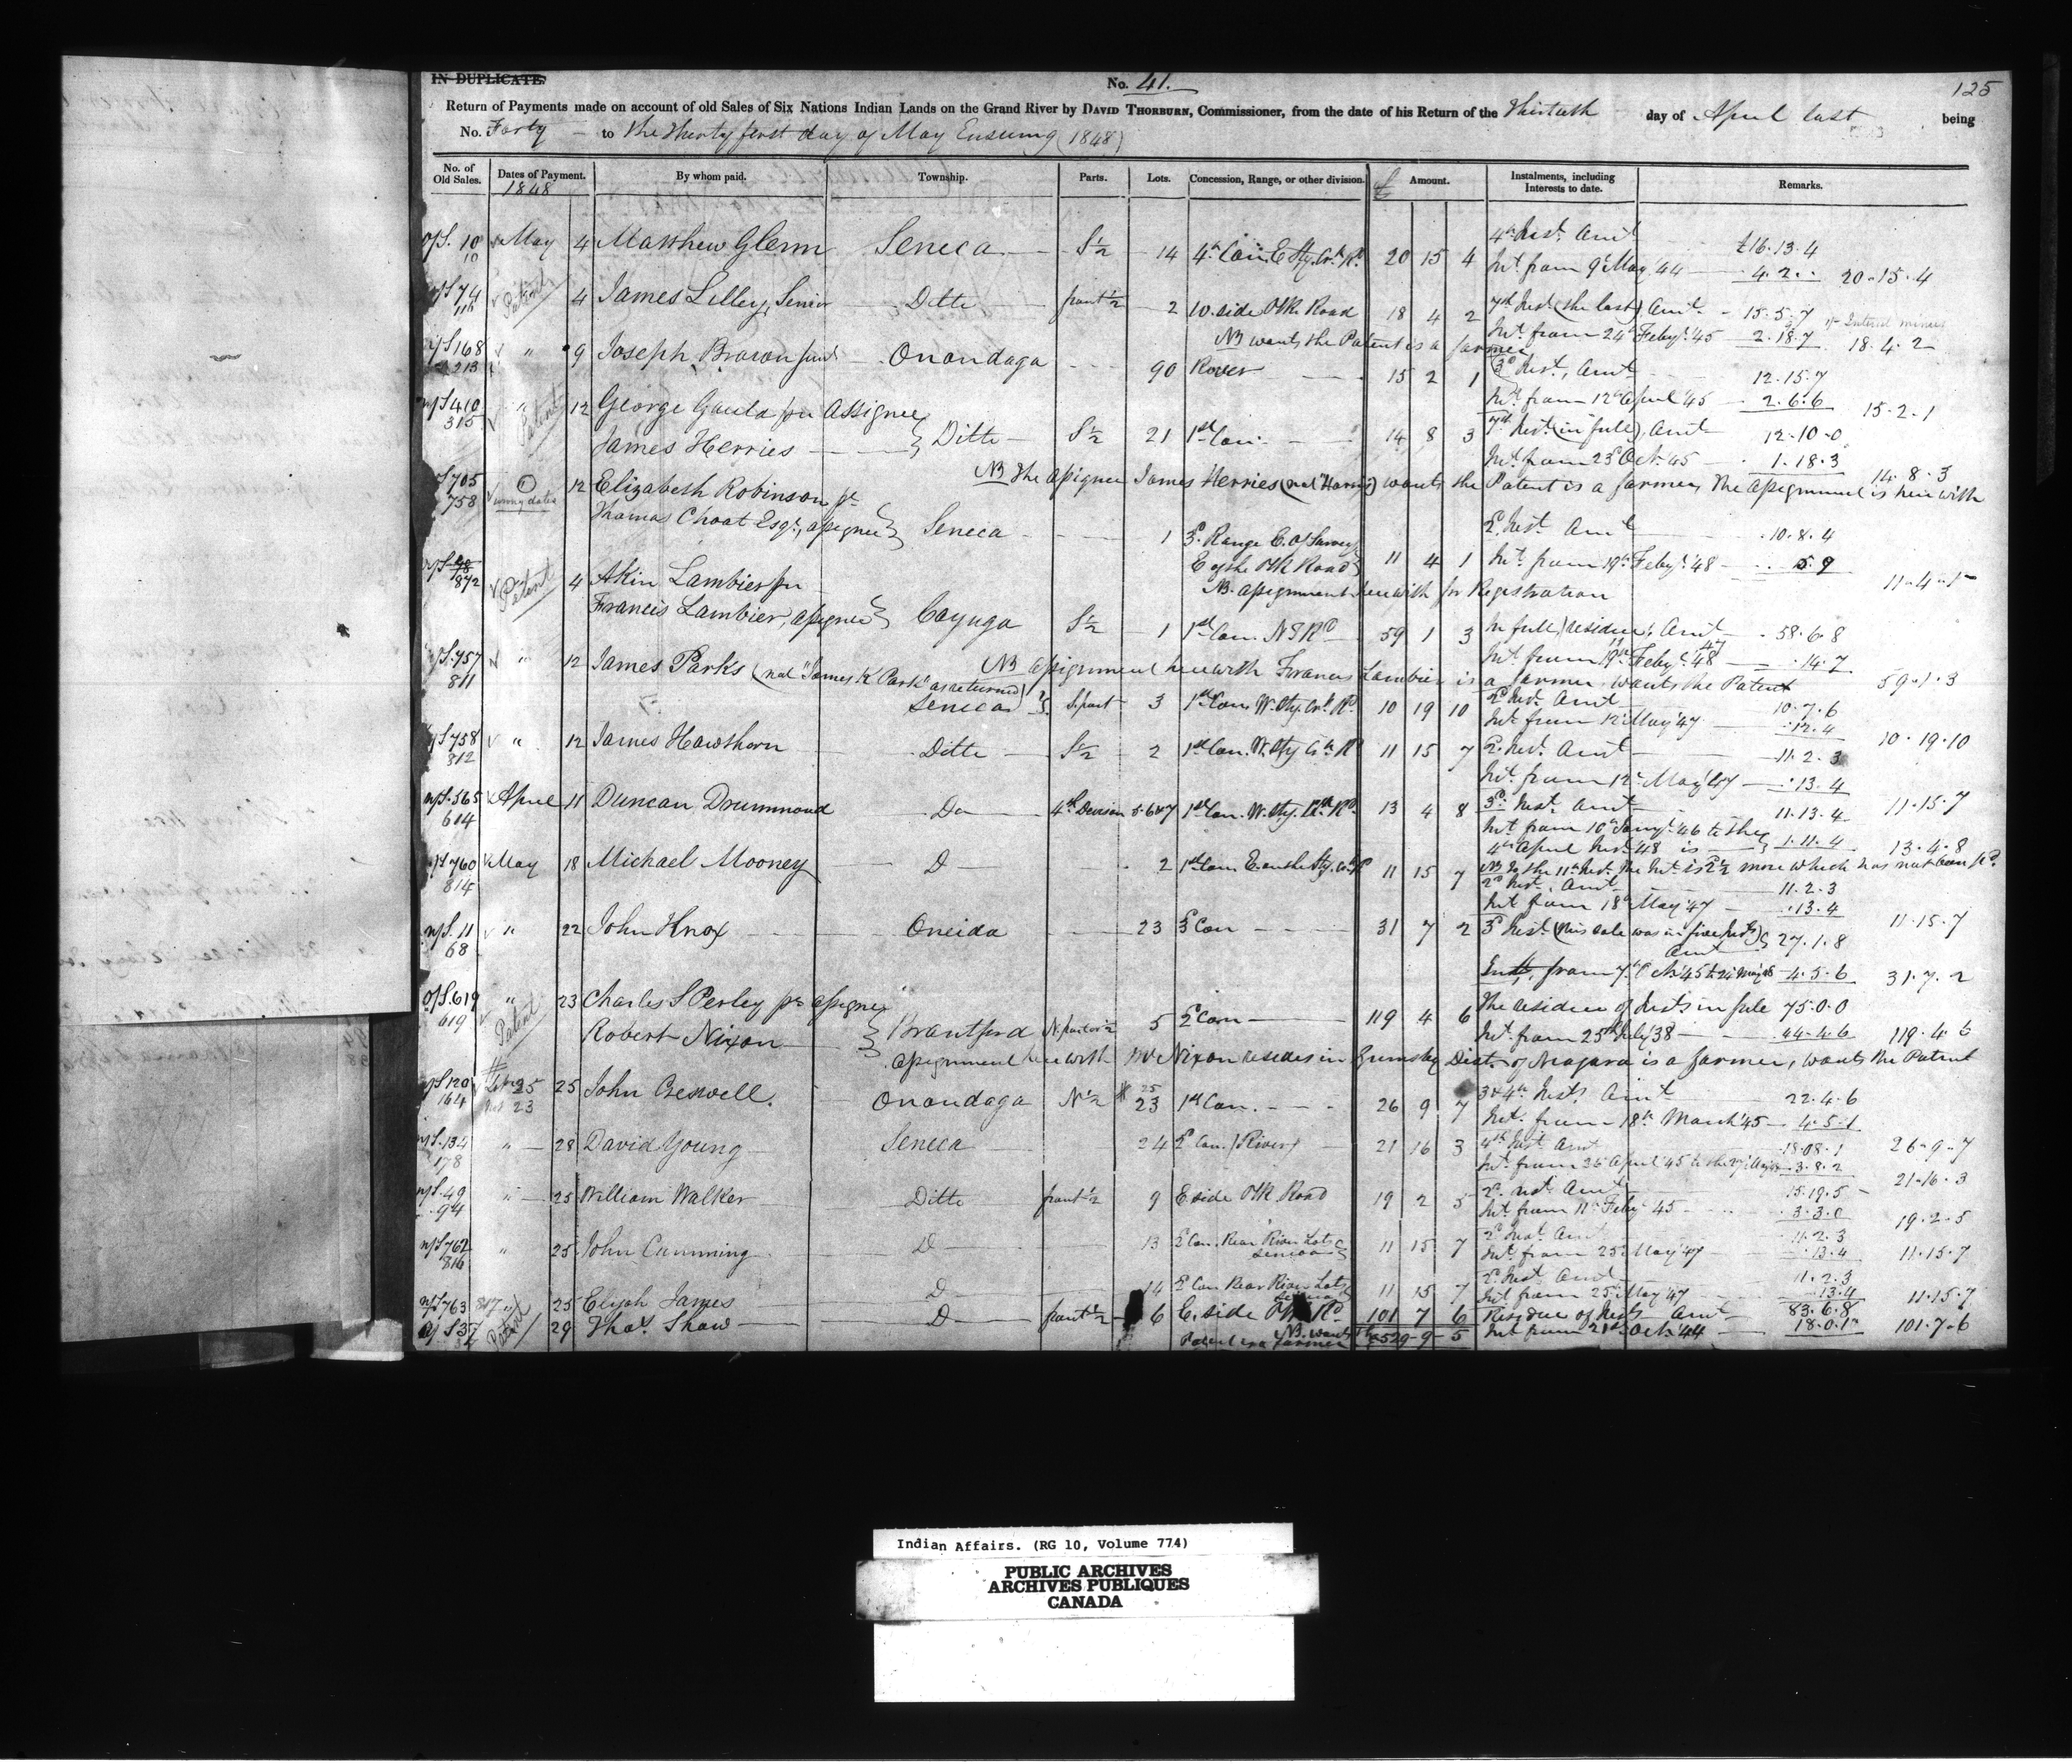 IN DUPLICATE.
No. 41.
125
Return of Payments made on account of old Sales of Six Nations Indian Lands on the Grand River by DAVID THORBURN, Commissioner, from the date of his Return of the Thirtieth day of April last being
No. Forty to the thirty first day of May Ensuing (1848)
No. of Old Sales. Dates of Payment. By whom paid. Township. Parts. Lots. Concession, Range, or other division. £ Amount. Instalments, including Interests to date. Remarks.
1848
4th Inst. Amt
o/S. 10 May 4 Matthew Glenn Seneca S½ 14 4th Con. E. 20 15 4 £16.13.4
10 Int. from 9th May '44 4.2.. 20-15-4
Patent 4 James Lilley, Senior Ditto front ½ 2 W. side Plk Road 18 4 2 7th Inst (the last) Amt 15.5.7
116 Int. from 24th Feby. '45 2.18.7 18.4.2
NB wants the Patent is a farmer
168 " 9 Joseph Brown Onondaga 90 River 15 2 1 3d Inst, Amt 12.15.7
213 Int. from 12th April '45 2.6.6 15-2-1
410 " Patent 12 George Gauld pr Assignee
315 James Herries Ditto S½ 21 1st Con. 14 8 3 7th Inst (in full), Amt 12-10-0
Int. from 23d Oct. '45 1.18.3 14.8.3
NB The assignee James Herries (not "Harris") wants the Patent is a farmer, The assignment is herewith
705 12 Elizabeth Robinson pr
758 wrong date Thomas Choat Esqr, assignee Seneca 1 3d. Range E. of Survey 2d Inst Amt 10.8.4
E of the Plk Road 11 4 1 Int. from 19th Feby. '48 11-4-1
NB. assignment herewith for Registration
872 Patent 4 Akin Lambier pr
Francis Lambier, assignee Cayuga S½ 1 1st Con. N S Rd 59 1 3 In full, residue, Amt 58.6.8
Int. from 19th Feby. '47 .14.7 59-1-3
NB assignment herewith Francis Lambier is a farmer, wants the Patent
757 " 12 James Parks (not "James K Park" as returned)
811 Seneca S. part 3 1st Con. W. 10 19 10 2d Inst. Amt 10.7.6
Int. from 12 May '47 .12.4 10.19.10
758 " 12 James Hawthorn Ditto S½ 2 1st Con. W. 11 15 7 2d Inst. Amt 11.2.3
812 Int. from 12th May '47 .13.4 11.15.7
565 April 11 Duncan Drummond Do 4th Division 5.6&7 1st Con. W. 13 4 8 3d. Inst. Amt 11.13.4
614 Int. from 10th Jany. '46 to the
4th April Inst. '48 is 1.11.4 13.4.8
760 May 18 Michael Mooney D 2 1st Con. E 11 15 7
814 2d Inst. Amt 11.2.3
Int from 18th May '47 .13.4 11.15.7
n/S. 11 " 22 John Knox Oneida 23 3d Con 31 7 2 3d Inst. (this sale was in five Insts) Amt 27.1.8
68 from 7th Oct. '45 to 22 May '48 4.5.6 31.7.2
o/S. 619 " Patent 23 Charles S Perley pr assignee The residue of Insts in full 75.0.0
619 Robert Nixon Brantford N. part or ½ 5 2d Con 119 4 6 Int. from 25th July '38 44.4.6 119.4.6
assignment herewith Mr Nixon resides in Grimsby Dist. of Niagara is a farmer, wants the Patent
120 25 John Creswell. Onondaga N½ 23 25 1st Con. 26 9 7 3 & 4th Insts Amt 22.4.6
164 Int. from 18th March '45 4.5.1 26-9-7
134 " 28 David Young Seneca 24 2d Con. (River) 21 16 3 4th Inst Amt 18.08.1
178 3.8.2 21-16.3
49 " 25 William Walker Ditto front ½ 9 E side Plk Road 19 2 5 2d. Inst. Amt 15.19.5
94 Int. from 11th Feby '45 3.3.0 19.2.5
762 " 25 John Cumming D 13 2d Con. Rear River Lots Seneca 11 15 7 2d Inst. Amt 11.2.3
816 Int. from 25 May '47 .13.4 11.15.7
n/S 763 817 " 25 Elijah James D 14 2d Con Rear River Lots Seneca 11 15 7 2d Inst Amt 11.2.3
Int from 25 May '47 .13.4 11.15.7
37 Patent 29 Thos. Shaw D front ½ 6 E. side Plk Rd 101 7 6 Residue of Insts Amt 83.6.8
NB. wants Patent is a farmer £529-9-5 Int from 21st Oct. '44 18.0.10 101.7.6
Indian Affairs. (RG 10, Volume 774)
PUBLIC ARCHIVES
ARCHIVES PUBLIQUES
CANADA